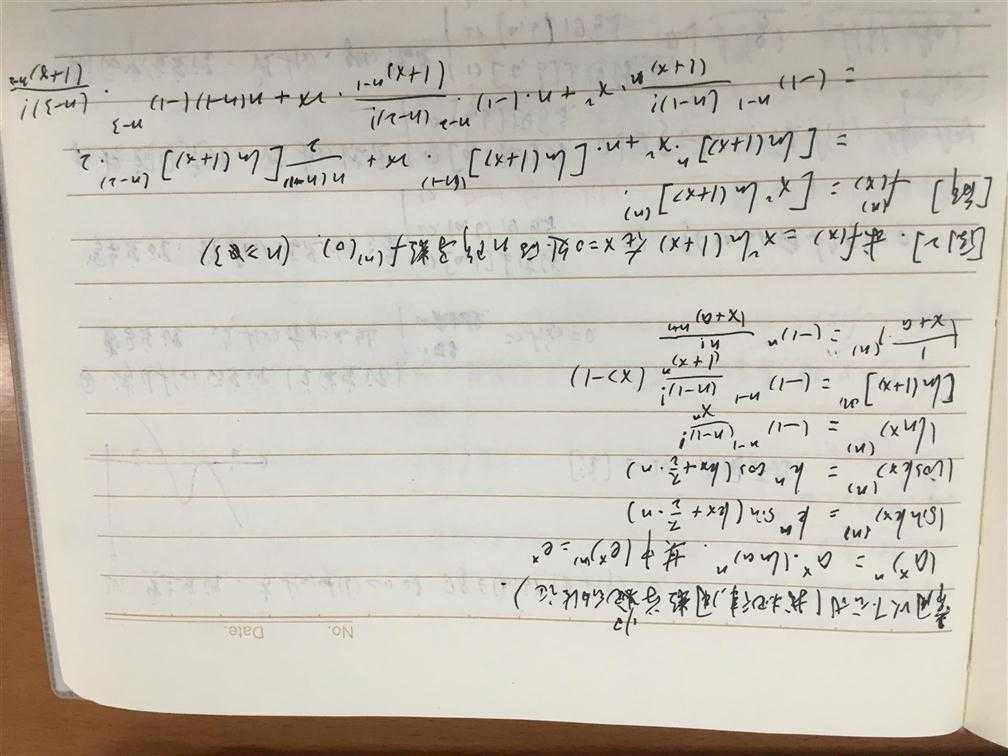 No.
Date.
常用以下公式(找规律, 用数学归纳法证)
(aˣ)ⁿ = aˣ·(ln a)ⁿ. 其中 (eˣ)⁽ⁿ⁾ = eˣ
(sin kx)⁽ⁿ⁾ = kⁿ sin(kx + π/2 · n)
(cos kx)⁽ⁿ⁾ = kⁿ cos(kx + π/2 · n)
(ln x)⁽ⁿ⁾ = (-1)ⁿ⁻¹ (n-1)!/xⁿ
[ln(1+x)]⁽ⁿ⁾ = (-1)ⁿ⁻¹ (n-1)!/(1+x)ⁿ (x>-1)
(1/(x+a))⁽ⁿ⁾ = (-1)ⁿ n!/(x+a)ⁿ⁺¹
[例2]. 求 f(x) = x² ln(1+x) 在 x=0 处的 n 阶导数 f⁽ⁿ⁾(0). (n≥3)
[解] f⁽ⁿ⁾(x) = [x² ln(1+x)]⁽ⁿ⁾.
= [ln(1+x)]ⁿ·x² + n·[ln(1+x)]⁽ⁿ⁻¹⁾·2x + n(n-1)/2 [ln(1+x)]⁽ⁿ⁻²⁾·2
= (-1)ⁿ⁻¹ (n-1)!/(1+x)ⁿ·x² + n·(-1)ⁿ⁻² (n-2)!/(1+x)ⁿ⁻¹·2x + n(n-1)(-1)ⁿ⁻³·(n-3)!/(1+x)ⁿ⁻²